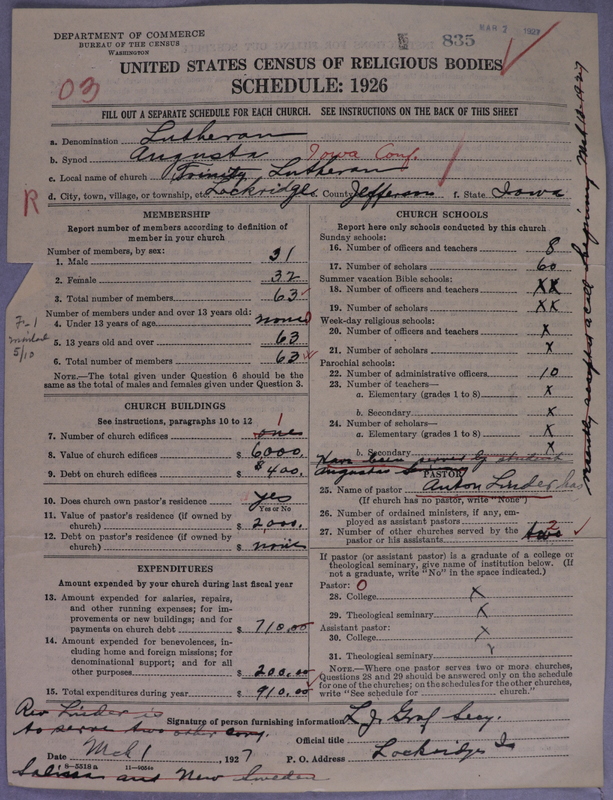 DEPARTMENT OF COMMERCE
BUREAU OF THE CENSUS
WASHINGTON
835
MAR 2 1927
UNITED STATES CENSUS OF RELIGIOUS BODIES
SCHEDULE: 1926
03
FILL OUT A SEPARATE SCHEDULE FOR EACH CHURCH. SEE INSTRUCTIONS ON THE BACK OF THIS SHEET
a. Denomination Lutheran
b. Synod Augusta Iowa Conf.
c. Local name of church Trinity Lutheran
d. City, town, village, or township, etc. Lockridge e. County Jefferson f. State Iowa
R
MEMBERSHIP
Report number of members according to definition of member in your church
Number of members, by sex:
1. Male 31
2. Female 32
3. Total number of members 63
Number of members under and over 13 years old:
4. Under 13 years of age none
5. 13 years old and over 63
6. Total number of members 63
NOTE.—The total given under Question 6 should be the same as the total of males and females given under Question 3.
CHURCH BUILDINGS
See instructions, paragraphs 10 to 12
7. Number of church edifices one 1
8. Value of church edifices $ 6000.
9. Debt on church edifices $ 400.
10. Does church own pastor's residence yes
Yes or No
11. Value of pastor's residence (if owned by church) $ 2,000.
12. Debt on pastor's residence (if owned by church) $ none
EXPENDITURES
Amount expended by your church during last fiscal year
13. Amount expended for salaries, repairs, and other running expenses; for improvements or new buildings; and for payments on church debt $ 710.00
14. Amount expended for benevolences, including home and foreign missions; for denominational support; and for all other purposes $ 200.00
15. Total expenditures during year $ 910.00
CHURCH SCHOOLS
Report here only schools conducted by this church
Sunday schools:
16. Number of officers and teachers 8
17. Number of scholars 60
Summer vacation Bible schools:
18. Number of officers and teachers XX
19. Number of scholars XX
Week-day religious schools:
20. Number of officers and teachers X
21. Number of scholars X
Parochial schools:
22. Number of administrative officers 10
23. Number of teachers—
a. Elementary (grades 1 to 8) X
b. Secondary X
24. Number of scholars—
a. Elementary (grades 1 to 8) X
b. Secondary X
Have been served by student
PASTOR
25. Name of pastor Anton Linder has
(If church has no pastor, write "None")
recently accepted a call beginning
26. Number of ordained ministers, if any, employed as assistant pastors
27. Number of other churches served by the pastor or his assistants two 2
If pastor (or assistant pastor) is a graduate of a college or theological seminary, give name of institution below. (If not a graduate, write "No" in the space indicated.)
Pastor: O
28. College X
29. Theological seminary X
Assistant pastor:
30. College X
31. Theological seminary
NOTE.—Where one pastor serves two or more churches, Questions 28 and 29 should be answered only on the schedule for one of the churches; on the schedules for the other churches, write "See schedule for church."
Rev Linder is
to serve two other cong.
Salina and New Sweden
Signature of person furnishing information L. J. Graf Secy.
Official title
Date Mch 1 1927 P. O. Address Lockridge Ia
8-5518 a